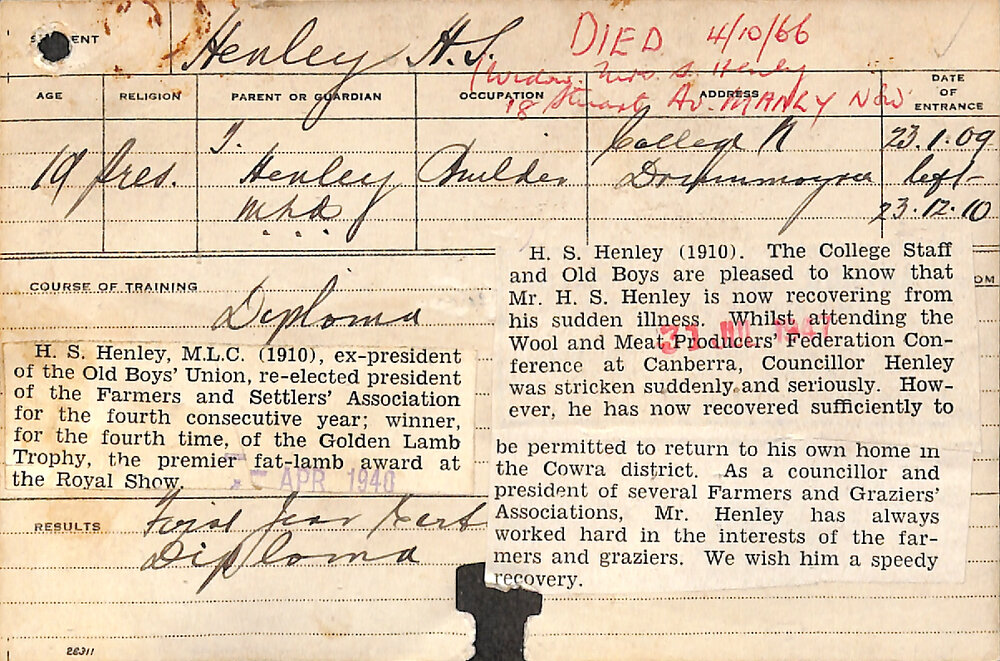 STUDENT
Henley H. S.
DIED 4/10/66
(Widow. Mrs. S. Henley
18 Stuart Av. MANLY NSW
AGE RELIGION PARENT OR GUARDIAN OCCUPATION ADDRESS DATE OF ENTRANCE
19 Pres. T. Henley M.L.A. Builder College R Drummoyne 23.1.09
left
23.12.10
COURSE OF TRAINING
Diploma
H. S. Henley, M.L.C. (1910), ex-president
of the Old Boys' Union, re-elected president
of the Farmers and Settlers' Association
for the fourth consecutive year; winner,
for the fourth time, of the Golden Lamb
Trophy, the premier fat-lamb award at
the Royal Show.
APR 1940
H. S. Henley (1910). The College Staff
and Old Boys are pleased to know that
Mr. H. S. Henley is now recovering from
his sudden illness. Whilst attending the
Wool and Meat Producers' Federation Con-
ference at Canberra, Councillor Henley
was stricken suddenly and seriously. How-
ever, he has now recovered sufficiently to
be permitted to return to his own home in
the Cowra district. As a councillor and
president of several Farmers and Graziers'
Associations, Mr. Henley has always
worked hard in the interests of the far-
mers and graziers. We wish him a speedy
recovery.
31 1947
OM
RESULTS
First Year Cert
Diploma
28311